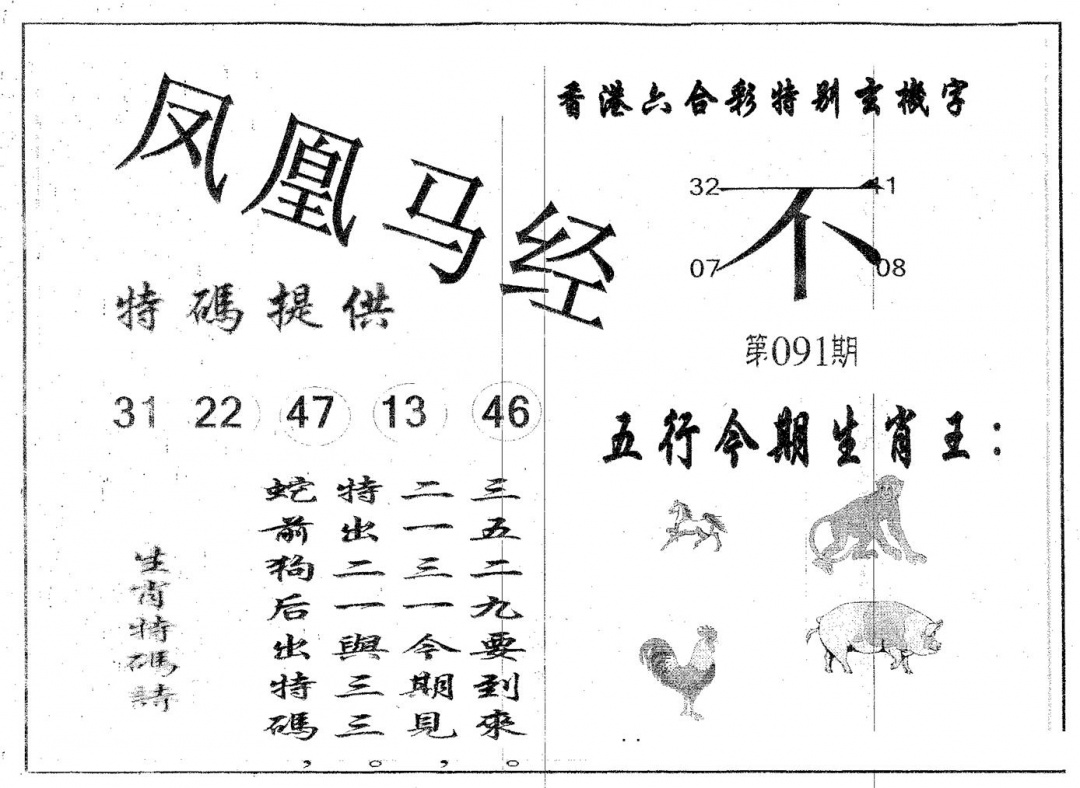 凤凰马经
香港六合彩特别玄機字
32 41
不
07 08
特碼提供
第091期
31 22 47 13 46
五行今期生肖王：
生肖特碼詩
蛇前狗后出特碼，
特出二一與三三。
二一三一今期見，
三五二九要到來。